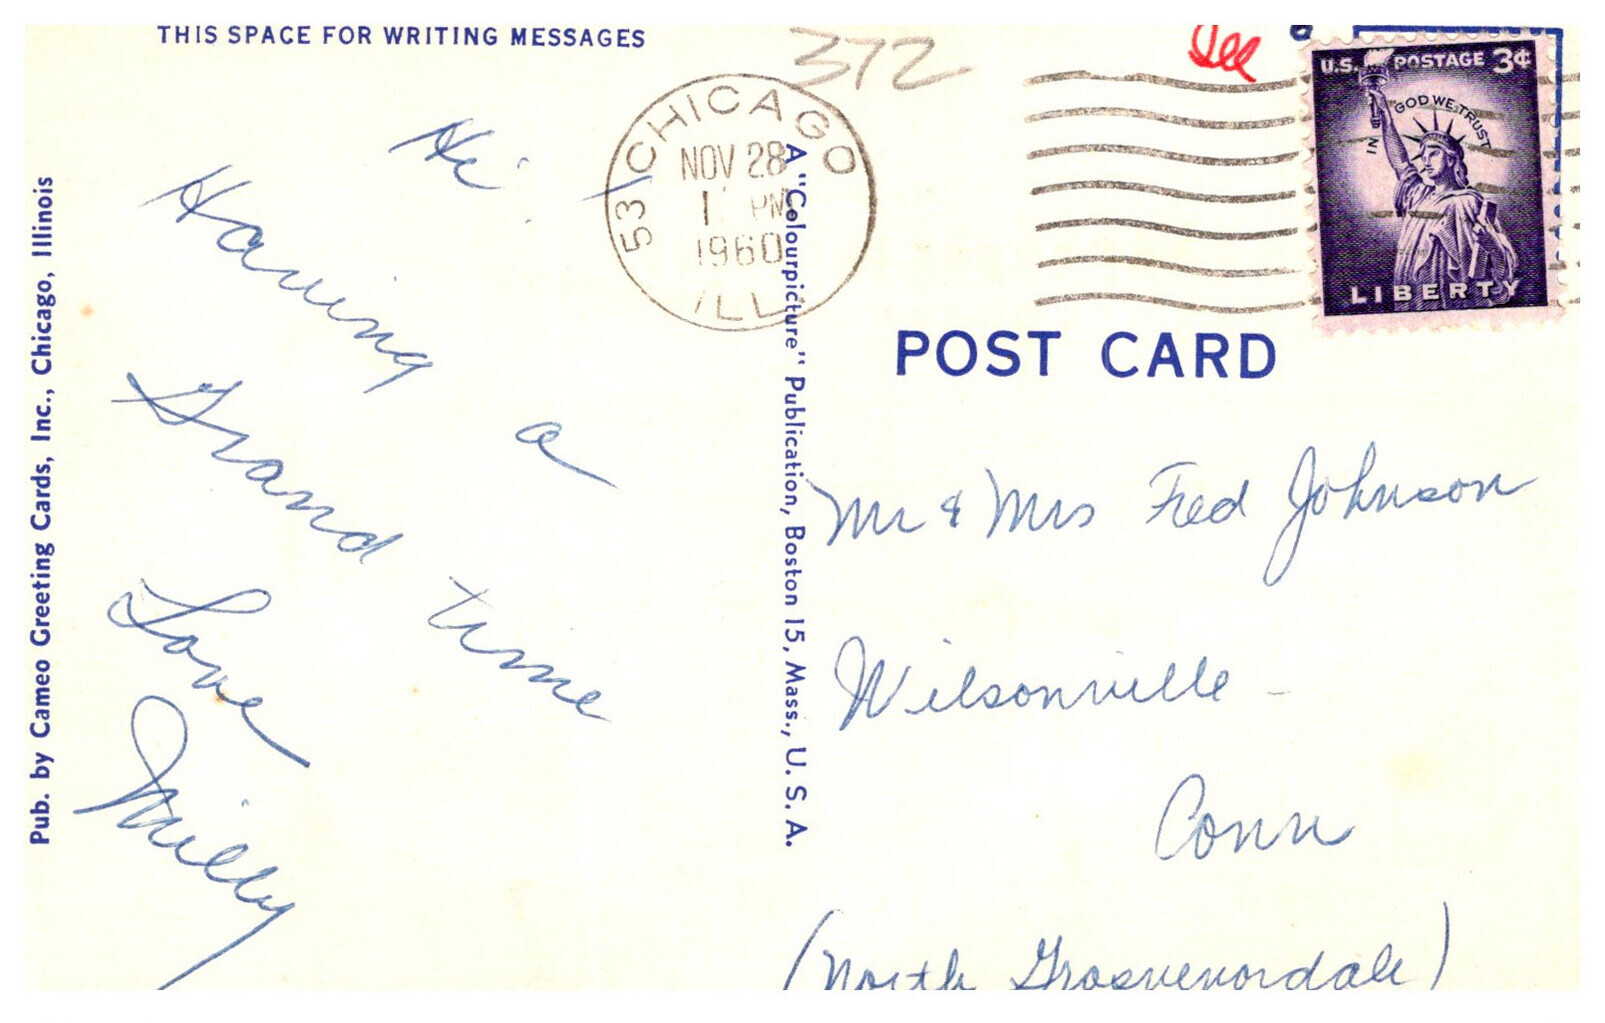 THIS SPACE FOR WRITING MESSAGES
Hi!
Having a
Grand time
Love
Milly
Pub. by Cameo Greeting Cards, Inc., Chicago, Illinois
A "Colourpicture" Publication, Boston 15, Mass., U. S. A.
372
CHICAGO
NOV 28
1 PM
1960
ILL
53
U.S. POSTAGE 3¢
IN GOD WE TRUST
LIBERTY
POST CARD
Mr & Mrs Fred Johnson
Wilsonville -
Conn
(North Grosvenordale)